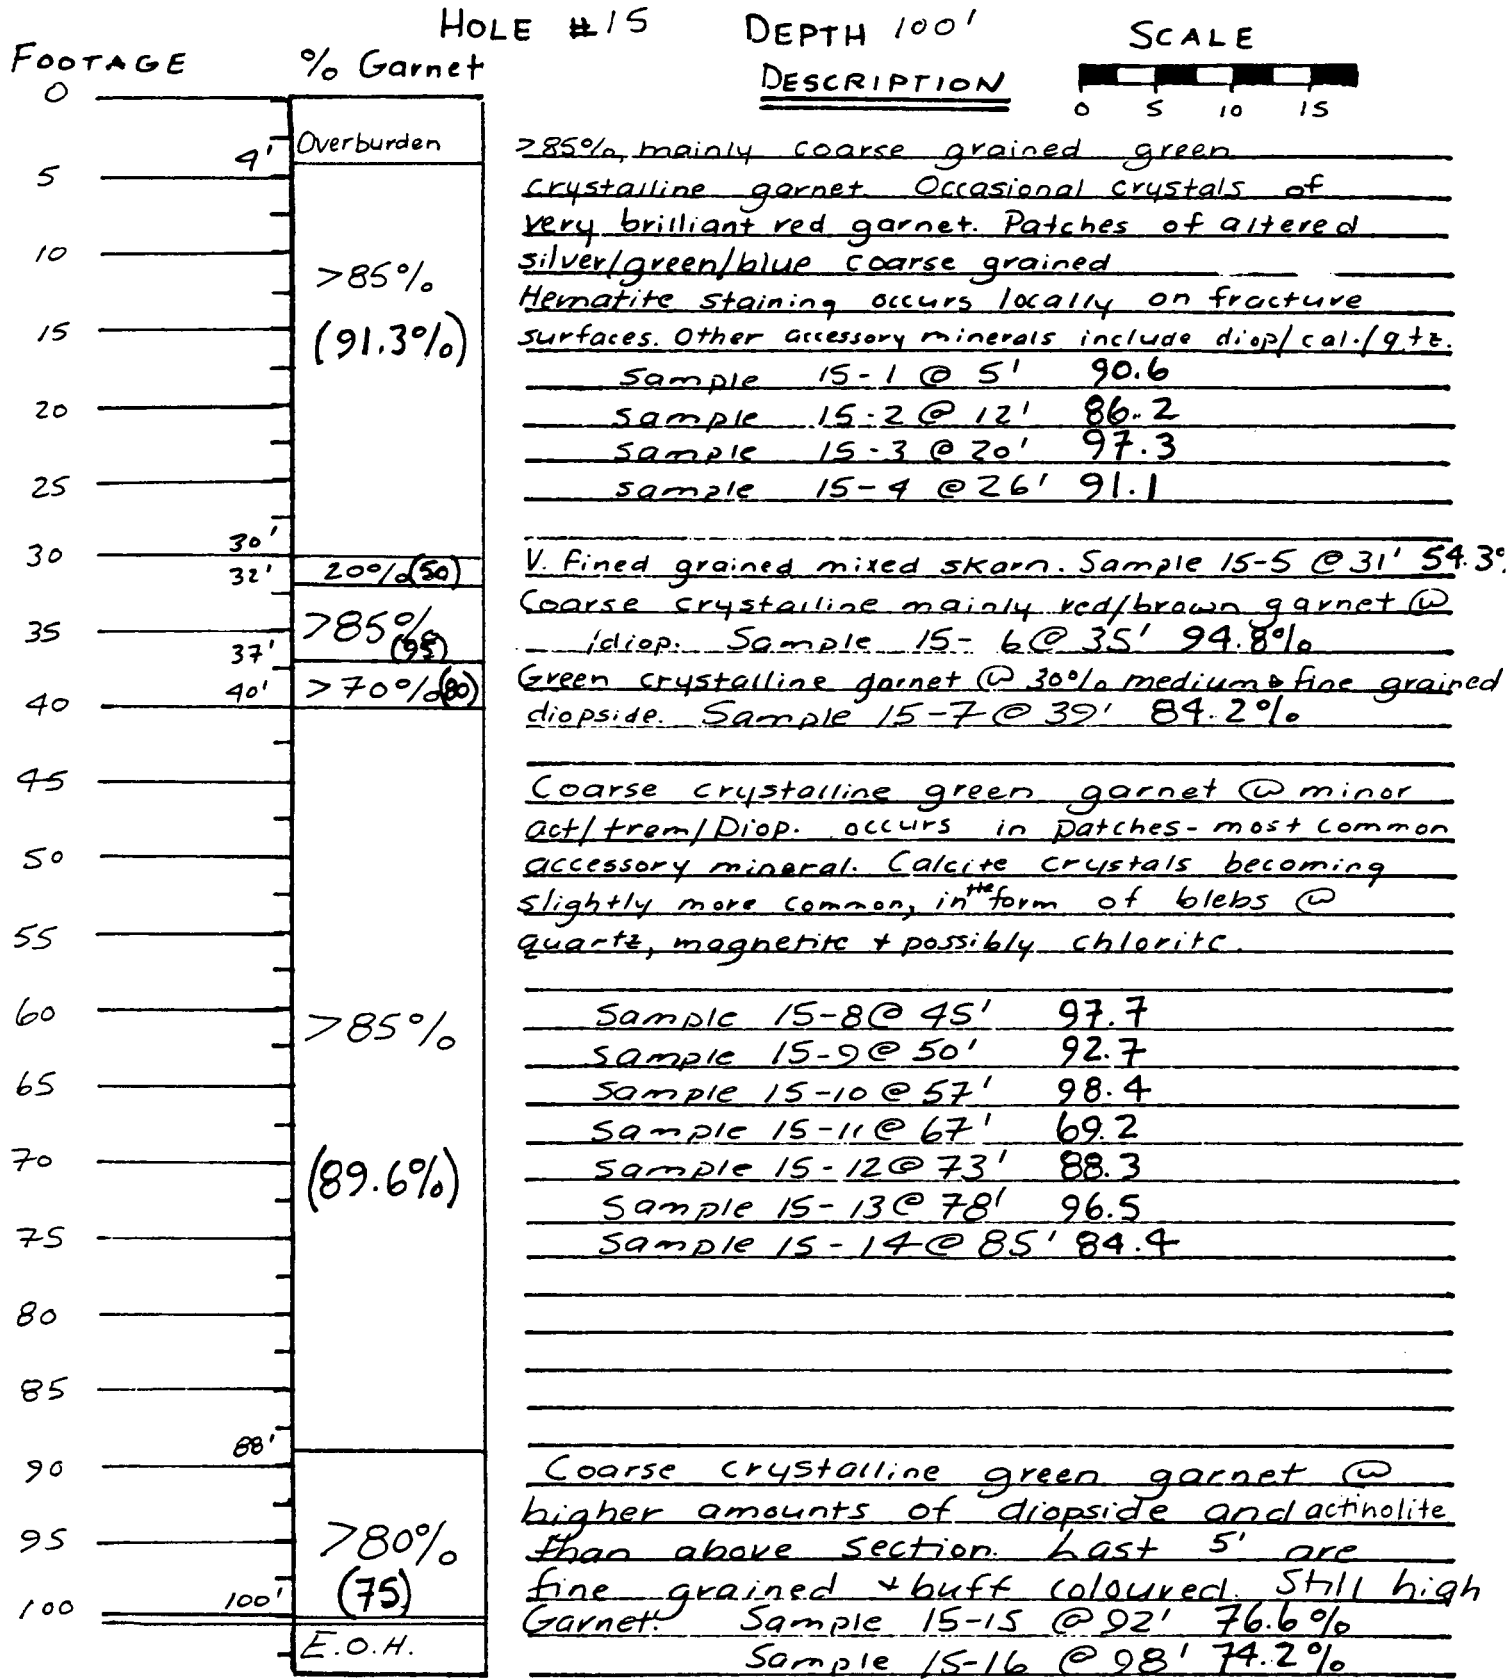 HOLE #15 DEPTH 100' SCALE
FOOTAGE % Garnet DESCRIPTION
0 5 10 15
0
Overburden
4'
>85%, mainly coarse grained green
5
crystalline garnet. Occasional crystals of
very brilliant red garnet. Patches of altered
10
silver/green/blue coarse grained
>85%
Hematite staining occurs locally on fracture
15
(91.3%)
surfaces. Other accessory minerals include diop/cal./qtz.
Sample 15-1 @ 5' 90.6
20
Sample 15-2 @ 12' 86.2
Sample 15-3 @ 20' 97.3
25
Sample 15-4 @ 26' 91.1
30'
30
32' 20% (50)
V. Fined grained mixed skarn. Sample 15-5 @ 31' 54.3%
Coarse crystalline mainly red/brown garnet @
35
>85%
(95)
37'
/diop. Sample 15-6 @ 35' 94.8%
40' >70% (80)
Green crystalline garnet @ 30% medium & fine grained
40
diopside. Sample 15-7 @ 39' 84.2%
45
Coarse crystalline green garnet @ minor
act/trem/Diop. occurs in patches - most common
50
accessory mineral. Calcite crystals becoming
slightly more common, in the form of blebs @
55
quartz, magnetite + possibly chlorite.
60
>85%
Sample 15-8 @ 45' 97.7
Sample 15-9 @ 50' 92.7
65
Sample 15-10 @ 57' 98.4
Sample 15-11 @ 67' 69.2
70
(89.6%)
Sample 15-12 @ 73' 88.3
Sample 15-13 @ 78' 96.5
75
Sample 15-14 @ 85' 84.4
80
85
88'
90
Coarse crystalline green garnet @
higher amounts of diopside and actinolite
95
>80%
than above section. Last 5' are
(75)
fine grained + buff coloured. Still high
100 100'
Garnet. Sample 15-15 @ 92' 76.6%
E.O.H.
Sample 15-16 @ 98' 74.2%